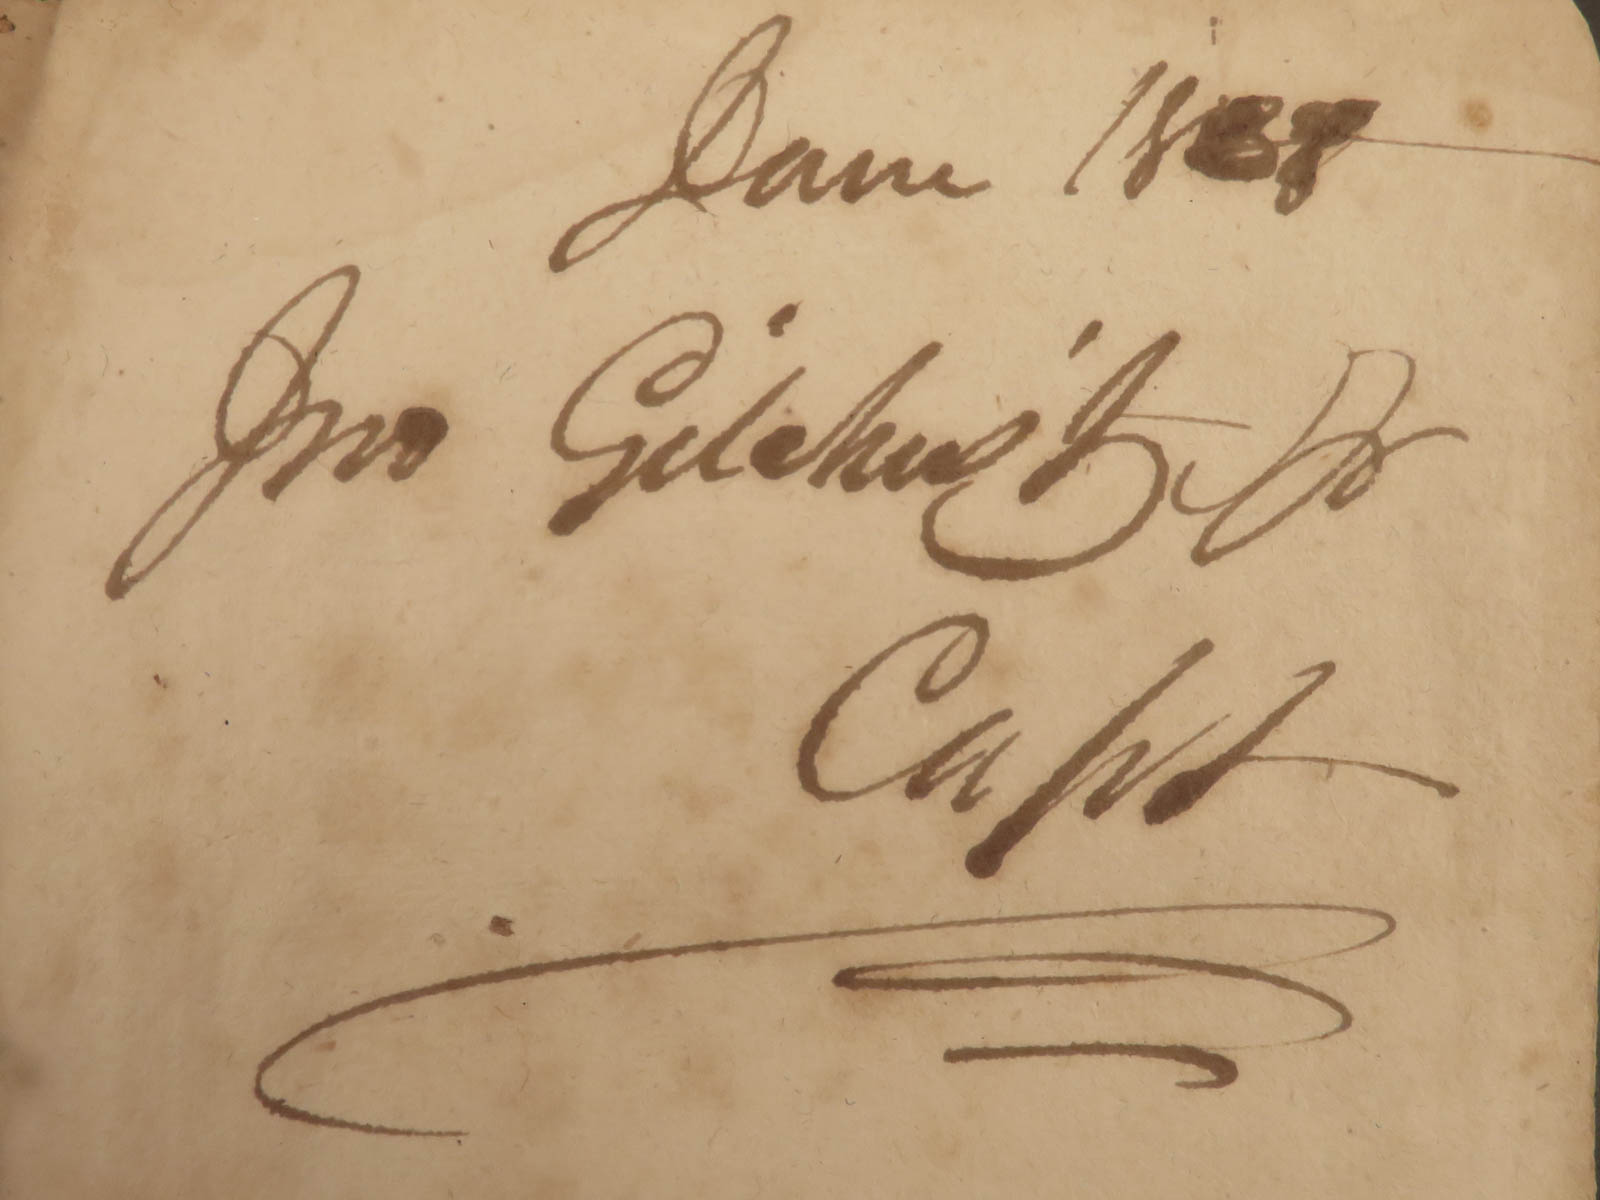 Jany 1838
Jno Gilchrist Jr
Capt